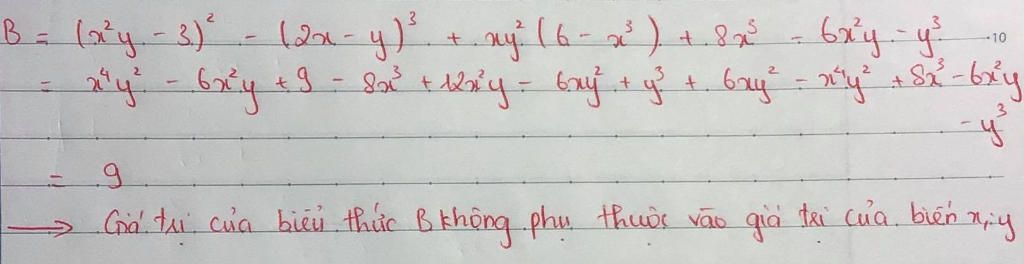 B = (x²y - 3)² - (2x - y)³ + xy²(6 - x³) + 8x³ - 6x²y - y³
= x⁴y² - 6x²y + 9 - 8x³ + 12x²y - 6xy² + y³ + 6xy² - x⁴y² + 8x³ - 6x²y
- y³
= 9
→ Giá trị của biểu thức B không phụ thuộc vào giá trị của biến x, y